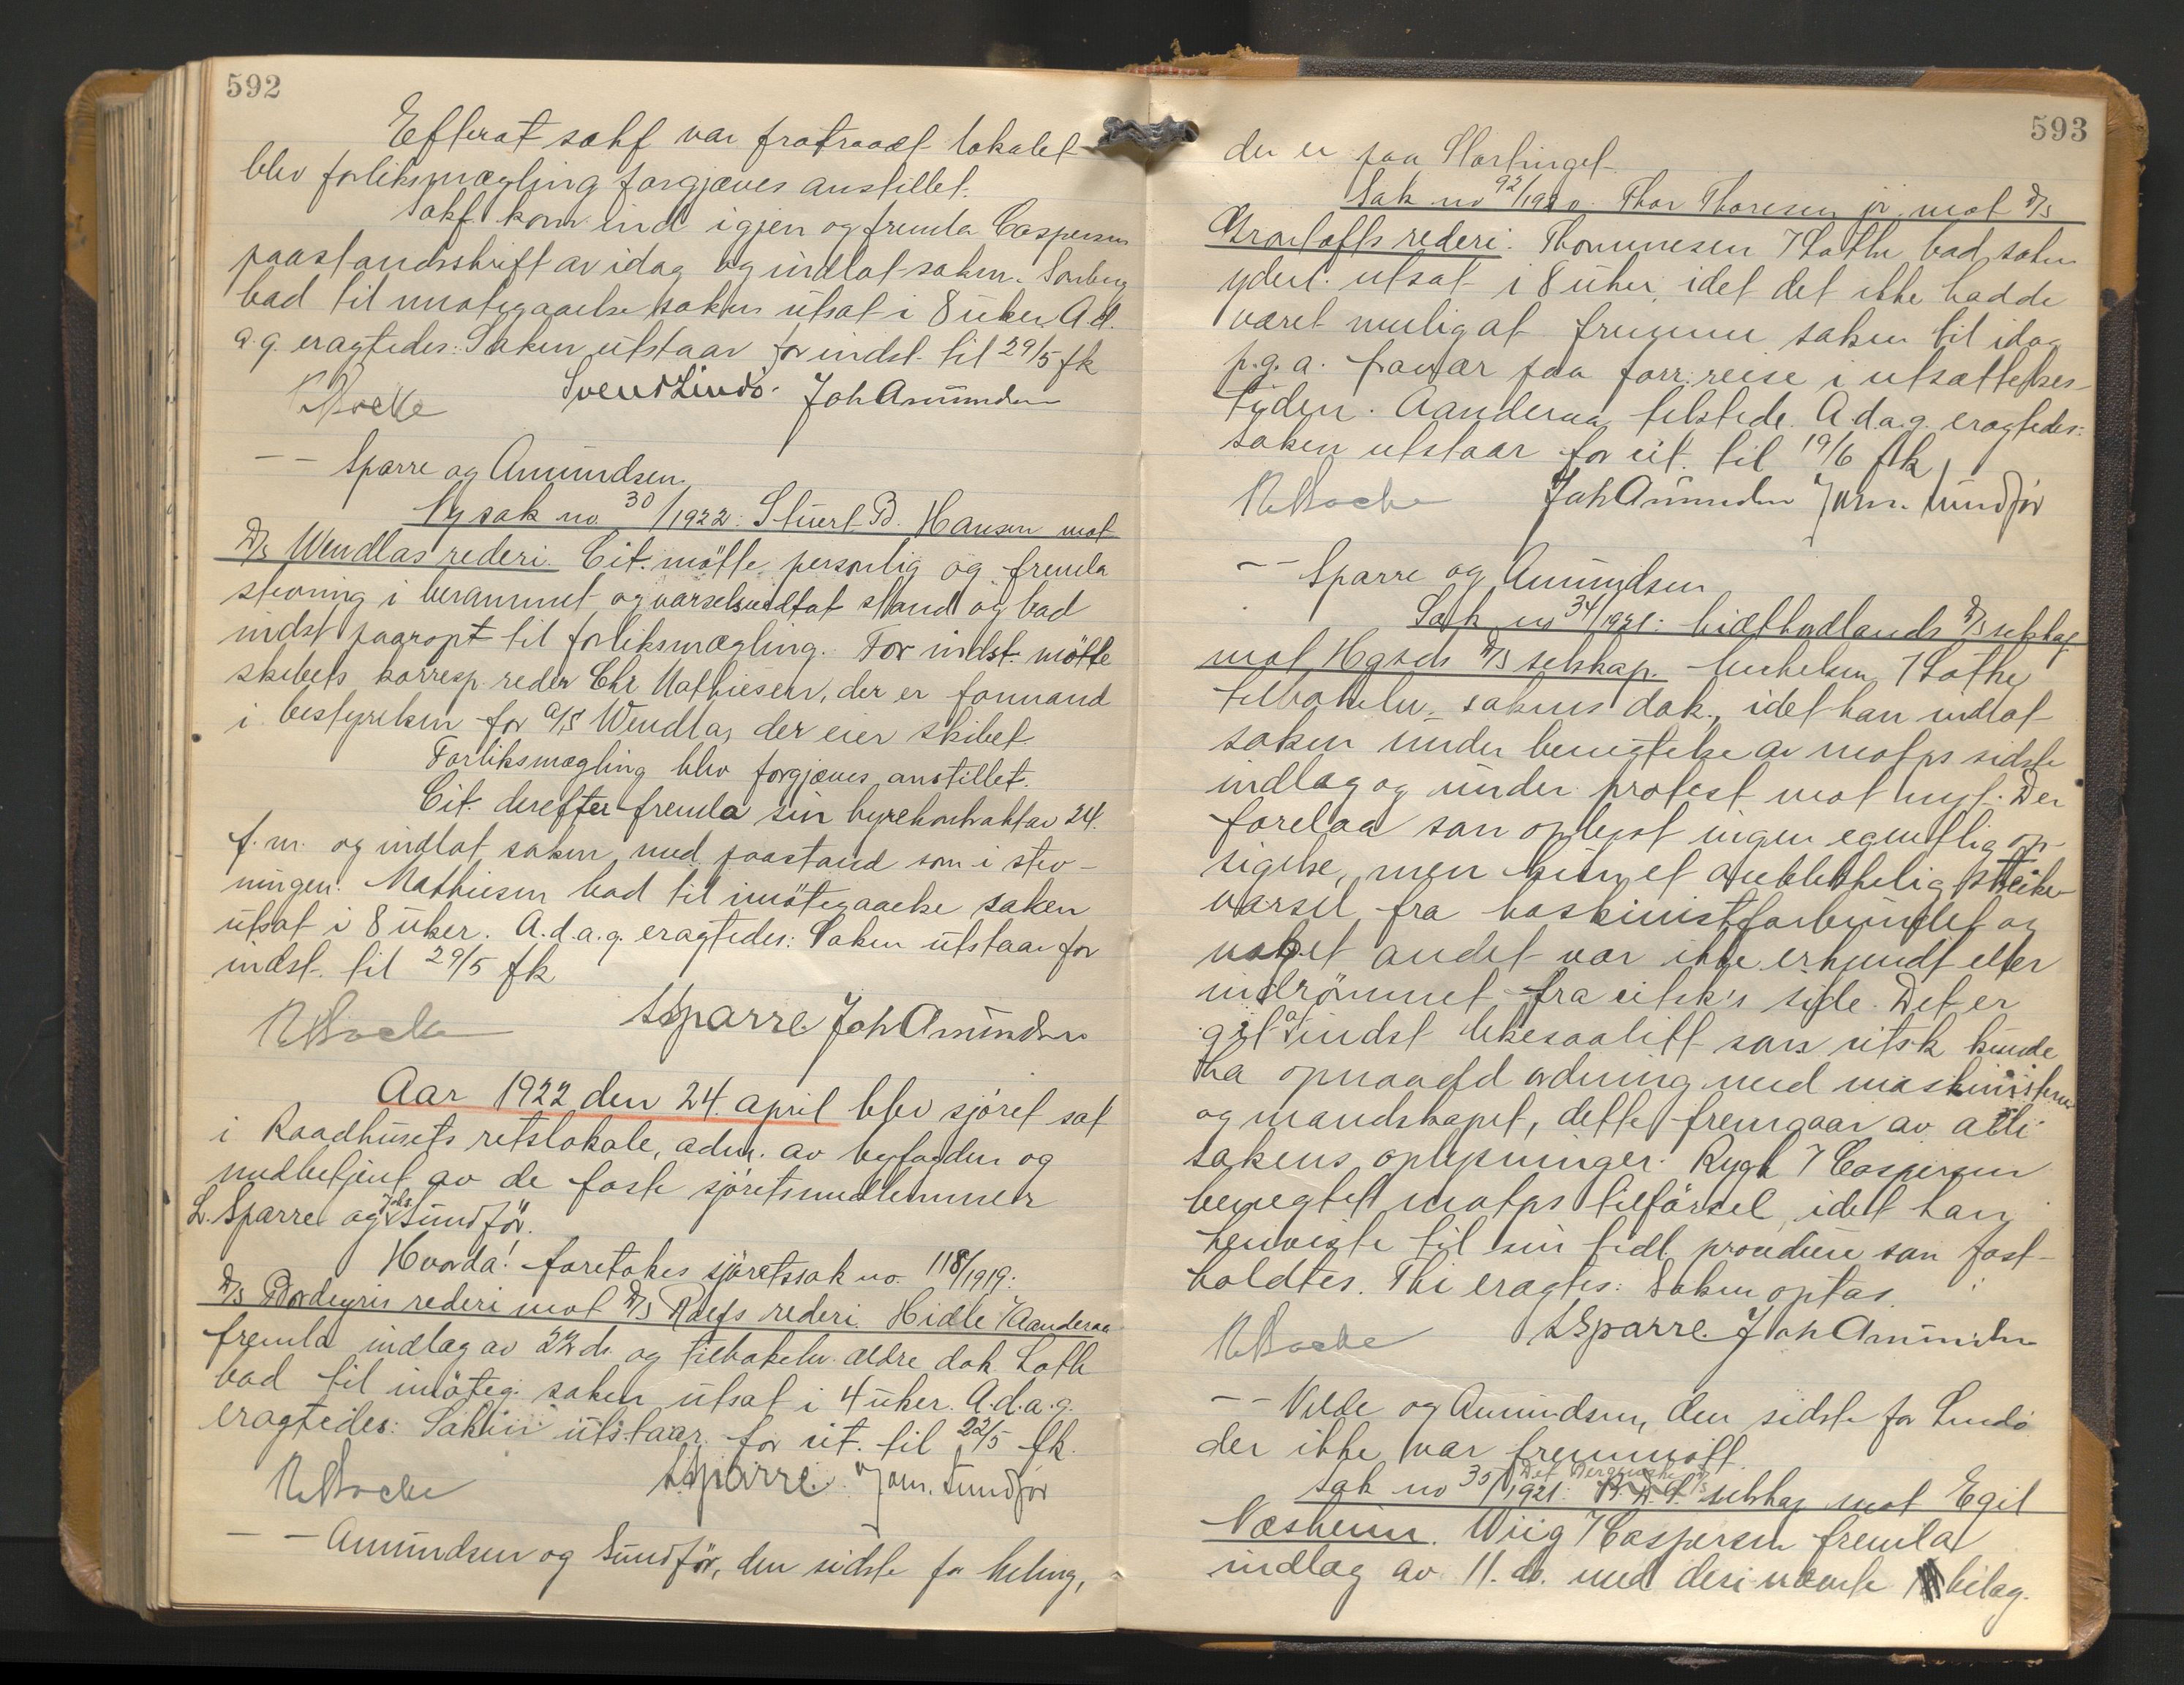 592
Efterat sakf var fratraadt lokalet
blev forliksmægling forgjæves anstillet.
Sakf kom ind igjen og fremla Caspersen
paastandsskrift av idag og indlot saken. Sanberg
bad til imøtegaaelse saken utsat i 8 uker. A.d.
a.g. eragtedes: Saken utstaar for indst. til 29/5 fk
Svend Lindö. Joh Amundsen
— — Sparre og Amundsen
Ny sak no. 30/1922: Stuert B. Hansen mot
D/s Wendlas rederi. Cit. mötte personlig og fremla
stevning i berammet og varselsvedtat stand og bad
indst. paaropt til forliksmægling. For indst. mötte
skibets korresp. reder Chr Mathiesen, der er formand
i bestyrelsen for a/s Wendla, der eier skibet.
Forliksmægling blev forgjæves anstillet.
Cit. derefter fremla sin hyrekontrakt av 24.
f.m. og indlot saken med paastand som i stev-
ningen. Mathiesen bad til imötegaaelse saken
utsat i 8 uker. A.d.a.g. eragtedes: Saken utstaar for
indst. til 29/5 fk
LSparre. Joh Amundsen
Aar 1922 den 24. april blev sjöret sat
i Raadhusets retslokale, adm. av byfogden og
medbetjent av de faste sjöretsmedlemmer
L. Sparre og Johs Sundför.
Hvorda! foretokes sjöretssak no. 118/1919:
D/s Bordeyris rederi mot D/s Ralfs rederi. Hidle / Aanderaa
fremla indlæg av 22 ds. og tilbakelev. ældre dok. Lothe
bad til imöteg. saken utsat i 4 uker. A.d.a.g.
eragtedes: Saken utstaar for cit. til 22/5 fk.
LSparre. Johs. Sundför
— — Amundsen og Sundför, den sidste for Meling,
593
der er paa Stortinget.
Sak no 92/1920. Thor Thoresen jr. mot D/s
Kronlofts rederi. Thommesen / Lothe bad saken
yderl. utsat i 8 uker, idet det ikke hadde
været mulig at fremme saken til idag
p.g.a. fravær paa forr. reise i utsættelses-
tiden. Aanderaa tilstede. A.d.a.g. eragtedes:
Saken utstaar for cit. til 19/6 fk
Joh Amundsen Johs. Sundför
— — Sparre og Amundsen
Sak no 34/1921: Midthordlands D/s selskap
mot Hgsds D/s selskap. Michelsen / Lothe
tilbakelev. sakens dok., idet han indlot
saken under benegtelse av motps sidste
indlæg og under protest mot nyt. Der
forelaa som oplyst ingen egentlig op-
sigelse, men kun et øieblikkelig streike-
varsel fra maskinistforbundet og
noget andet var ikke erkjendt eller
indrömmet fra citsk's side. Det er
git at indst. likesaalitt som citsk kunde
ha opnaadd ordning med maskinisterne
og mandskapet, dette fremgaar av alle
sakens oplysninger. Rygh / Caspersen
benegtet motps tilförsel, idet han
henviste til sin tidl. procedure som fast-
holdtes. Thi eragtes: Saken optas.
LSparre. Joh Amundsen
— — Vilde og Amundsen, den sidste for Lindö
der ikke var fremmött.
Sak no 35/1921: Det Bergenske D/s selskap mot Egil
Næsheim. Wiig / Caspersen fremla
indlæg av 11. ds. med deri nævnte bilag.